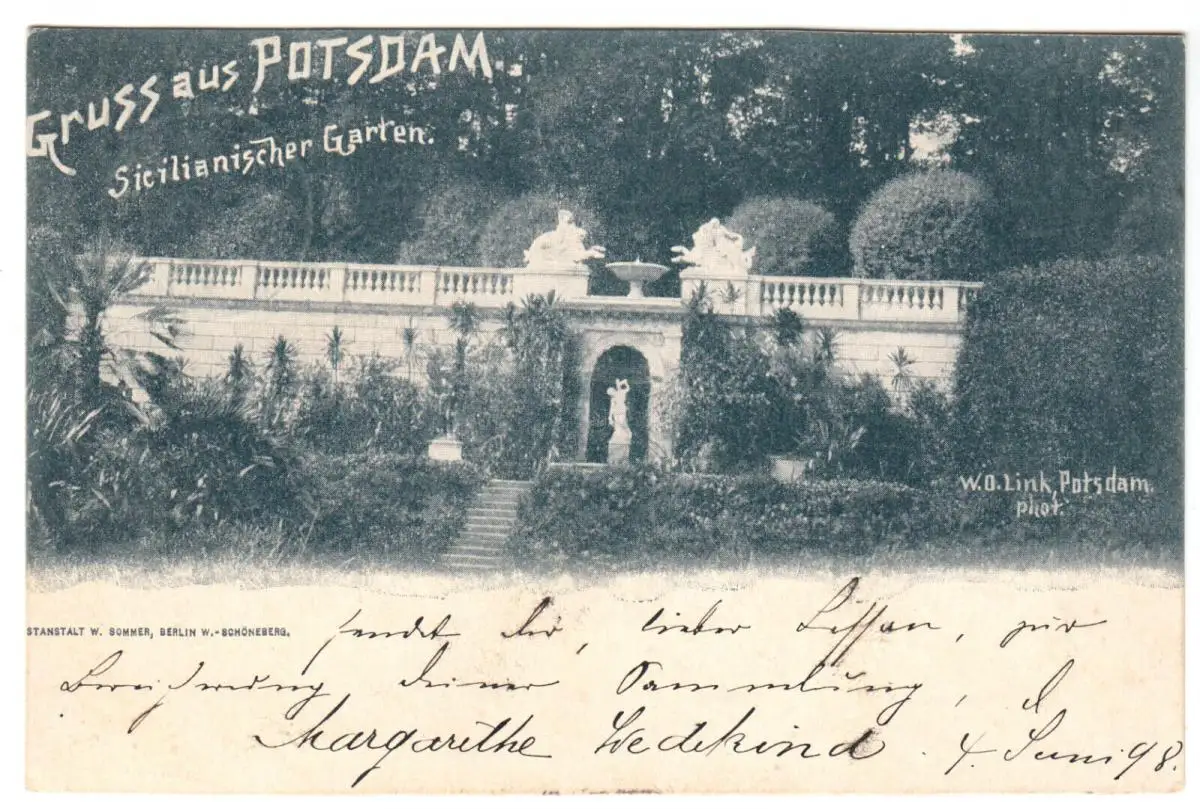 Gruss aus POTSDAM.
Sicilianischer Garten.
W.O. Link, Potsdam.
phot.
STANSTALT W. SOMMER, BERLIN W.-SCHÖNEBERG.
sendet dir, lieber, zur
Bereicherung deiner Sammlung,
Margarethe Wedekind. 4. Juni 98.